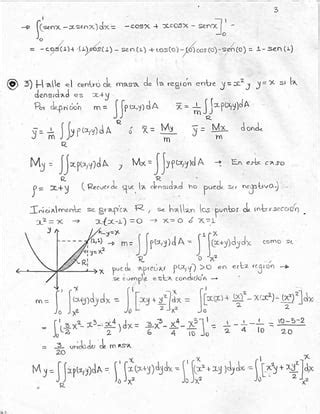 3
→ ∫₀¹(senx - xsenx)dx = -cosx + xcosx - senx]₀¹ -
= -cos(1) + (1)cos(1) - sen(1) + cos(0) - (0)cos(0) - sen(0) = 1 - sen(1)
3) Halle el centro de masa de la región entre y=x² y y=x si la
densidad es x+y
Por definición m = ∬ρ(x,y)dA x̄ = 1/m ∬xρ(x,y)dA
R R
ȳ = 1/m ∬yρ(x,y)dA ó x̄ = My/m ȳ = Mx/m donde
R
My = ∬xρ(x,y)dA , Mx = ∬yρ(x,y)dA → En este caso
R R
ρ = x+y (Recuerde que la densidad no puede ser negativa.)
Inicialmente se grafica R, se hallan los puntos de intersección
x² = x → x(x-1) = 0 → x=0 ó x=1
y y=x
(1,1) y=x² R x
→ m = ∬ρ(x,y)dA = ∫₀¹∫ₓ²ˣ(x+y)dydx como se
R
puede apreciar ρ(x,y)>0 en esta región →
se cumple esta condición →
m = ∫₀¹∫ₓ²ˣ(x+y)dydx = ∫₀¹[xy + y²/2]ₓ²ˣdx = ∫₀¹[x(x) + (x)²/2 - x(x²) - (x²)²/2]dx
= ∫₀¹(3/2 x² - x³ - x⁴/2)dx = 3x³/6 - x⁴/4 - x⁵/10]₀¹ = 1/2 - 1/4 - 1/10 = (10-5-2)/20
= 3/20 unidades de masa
My = ∬xρ(x,y)dA = ∫₀¹∫ₓ²ˣx(x+y)dydx = ∫₀¹∫ₓ²ˣ(x²+xy)dydx = ∫₀¹[x²y + xy²/2]ₓ²ˣdx
R